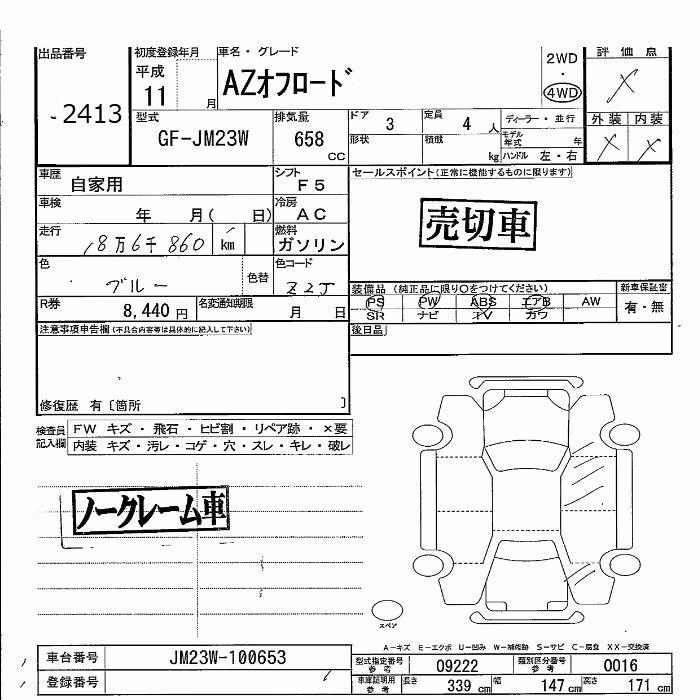 出品番号
- 2413
初度登録年月
平成
11 月
車名・グレード
AZオフロード
2WD
・
4WD
評価点
X
外装 内装
X X
型式
GF-JM23W
排気量
658
CC
ドア 3
定員 4 人
ディーラー・並行
形状
積載 kg
モデル年式 年
ハンドル 左・右
車歴 自家用
シフト F5
セールスポイント(正常に機能するものに限ります)
車検 年 月( 日)
冷房 AC
売切車
走行 18万6千860 km
燃料 ガソリン
色 ブルー 色替
色コード Z2J
装備品 (純正品に限り○をつけてください)
新車保証書
PS PW ABS エアB AW
有・無
SR ナビ TV カワ
R券 8,440 円
名変通知期限 月 日
後日品
注意事項申告欄(不具合内容等は具体的に記入して下さい)
修復歴 有〔箇所 〕
検査員記入欄
FW キズ・飛石・ヒビ割・リペア跡・×要
内装 キズ・汚レ・コゲ・穴・スレ・キレ・破レ
ノークレーム車
スペア
A-キズ E-エクボ U-凹み W-補修跡 S-サビ C-腐食 XX-交換済
車台番号 JM23W-100653
登録番号
型式指定番号参考 09222
類別区分番号参考 0016
車庫証明用参考 長さ 339 cm 幅 147 cm 高さ 171 cm